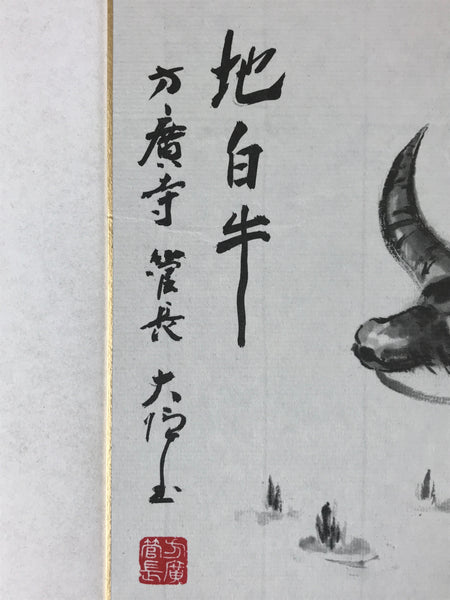 地白牛
方廣寺 管長 大
方廣
管長